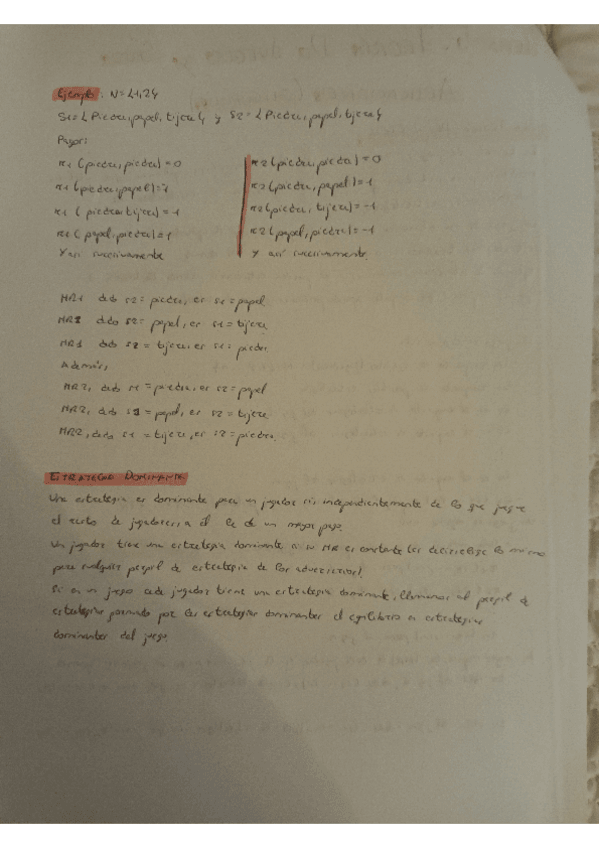 Ejemplo: N={1,2}
S1={Piedra, papel, tijera} y S2={Piedra, papel, tijera}
Pagos:
π1 (piedra, piedra)=0
π1 (piedra, papel)=-1
π1 (piedra, tijera)=1
π1 (papel, piedra)=1
Y así sucesivamente
π2 (piedra, piedra)=0
π2 (piedra, papel)=1
π2 (piedra, tijera)=-1
π2 (papel, piedra)=-1
Y así sucesivamente.
MR1 dado s2= piedra, es s1=papel
MR1 dado s2= papel, es s1=tijera
MR1 dado s2= tijera, es s1= piedra
Además,
MR2, dado s1=piedra, es s2=papel
MR2, dado s1=papel, es s2=tijera.
MR2, dado s1=tijera, es s2=piedra.
ESTRATEGIA DOMINANTE
Una estrategia es dominante para un jugador si independientemente de lo que juegue
el resto de jugadores a él le da un mejor pago.
Un jugador tiene una estrategia dominante si su MR es constante (es decir elige lo mismo
para cualquier perfil de estrategia de los adversarios).
Si en un juego cada jugador tiene una estrategia dominante, llamamos al perfil de
estrategias formado por las estrategias dominantes el equilibrio en estrategias
dominantes del juego.